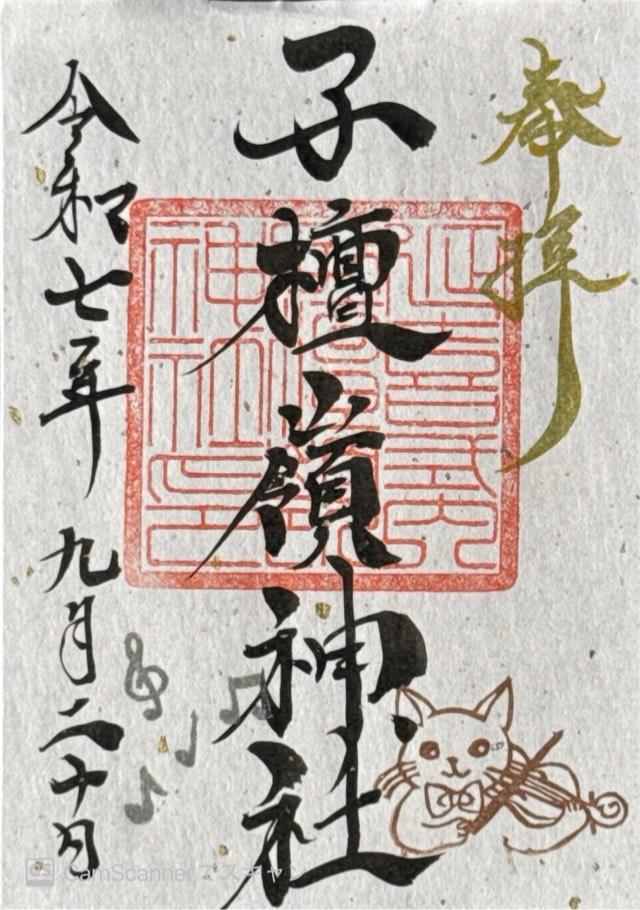 奉拝
子檀嶺神社
令和七年九月二十日
CamScanner でスキャン